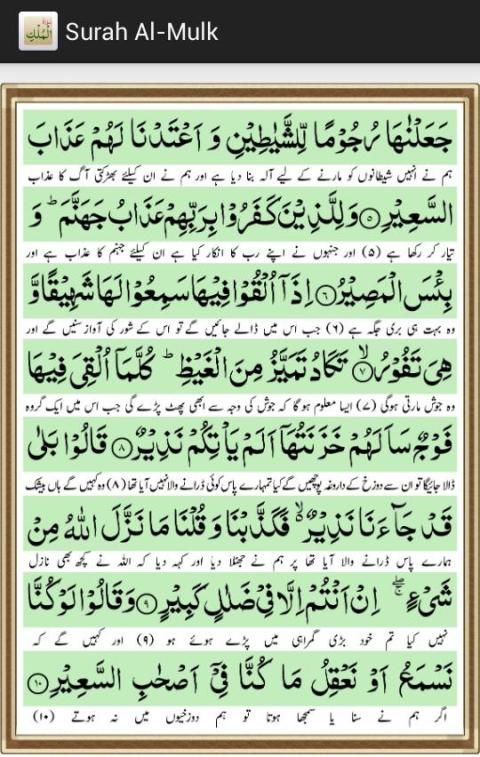 Surah Al-Mulk
جَعَلْنٰهَا رُجُوْمًا لِّلشَّيٰطِيْنِ وَ اَعْتَدْنَا لَهُمْ عَذَابَ
ہم نے انہیں شیطانوں کو مارنے کے لیے آلہ بنا دیا ہے اور ہم نے ان کیلئے بھڑکتی آگ کا عذاب
السَّعِيْرِ ۝۵ وَلِلَّذِيْنَ كَفَرُوْا بِرَبِّهِمْ عَذَابُ جَهَنَّمَ ؕ وَ
تیار کر رکھا ہے (۵) اور جنہوں نے اپنے رب کا انکار کیا ہے ان کیلئے جہنم کا عذاب ہے اور
بِئْسَ الْمَصِيْرُ ۝۶ اِذَاۤ اُلْقُوْا فِيْهَا سَمِعُوْا لَهَا شَهِيْقًا وَّ
وہ بہت ہی بری جگہ ہے (۶) جب اس میں ڈالے جائیں گے تو اس کے شور کی آواز سنیں گے اور
هِيَ تَفُوْرُ ۝۷ۙ تَكَادُ تَمَيَّزُ مِنَ الْغَيْظِ ؕ كُلَّمَاۤ اُلْقِيَ فِيْهَا
وہ جوش مارتی ہوگی (۷) ایسا معلوم ہو گا کہ جوش کی وجہ سے ابھی پھٹ پڑے گی جب اس میں ایک گروہ
فَوْجٌ سَاَلَهُمْ خَزَنَتُهَاۤ اَلَمْ يَاْتِكُمْ نَذِيْرٌ ۝۸ قَالُوْا بَلٰى
ڈالا جائیگا تو ان سے دوزخ کے داروغہ پوچھیں گے کیا تمہارے پاس کوئی ڈرانے والا نہیں آیا تھا (۸) وہ کہیں گے ہاں بیشک
قَدْ جَآءَنَا نَذِيْرٌ ۙ فَكَذَّبْنَا وَ قُلْنَا مَا نَزَّلَ اللّٰهُ مِنْ
ہمارے پاس ڈرانے والا آیا تھا پر ہم نے جھٹلا دیا اور کہہ دیا کہ اللہ نے کچھ بھی نازل
شَيْءٍ ۚۖ اِنْ اَنْتُمْ اِلَّا فِيْ ضَلٰلٍ كَبِيْرٍ ۝۹ وَقَالُوْا لَوْ كُنَّا
نہیں کیا تم خود بڑی گمراہی میں پڑے ہوئے ہو (۹) اور کہیں گے کہ
نَسْمَعُ اَوْ نَعْقِلُ مَا كُنَّا فِيْۤ اَصْحٰبِ السَّعِيْرِ ۝۱۰
اگر ہم نے سنا یا سمجھا ہوتا تو ہم دوزخیوں میں نہ ہوتے (۱۰)